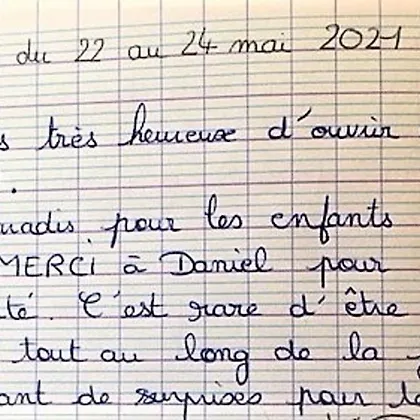 du 22 au 24 mai 2021
s très heureux d'ouvrir
.
uadis pour les enfants
MERCI à Daniel pour
té. C'est rare d'être
tout au long de la
ant de surprises pour